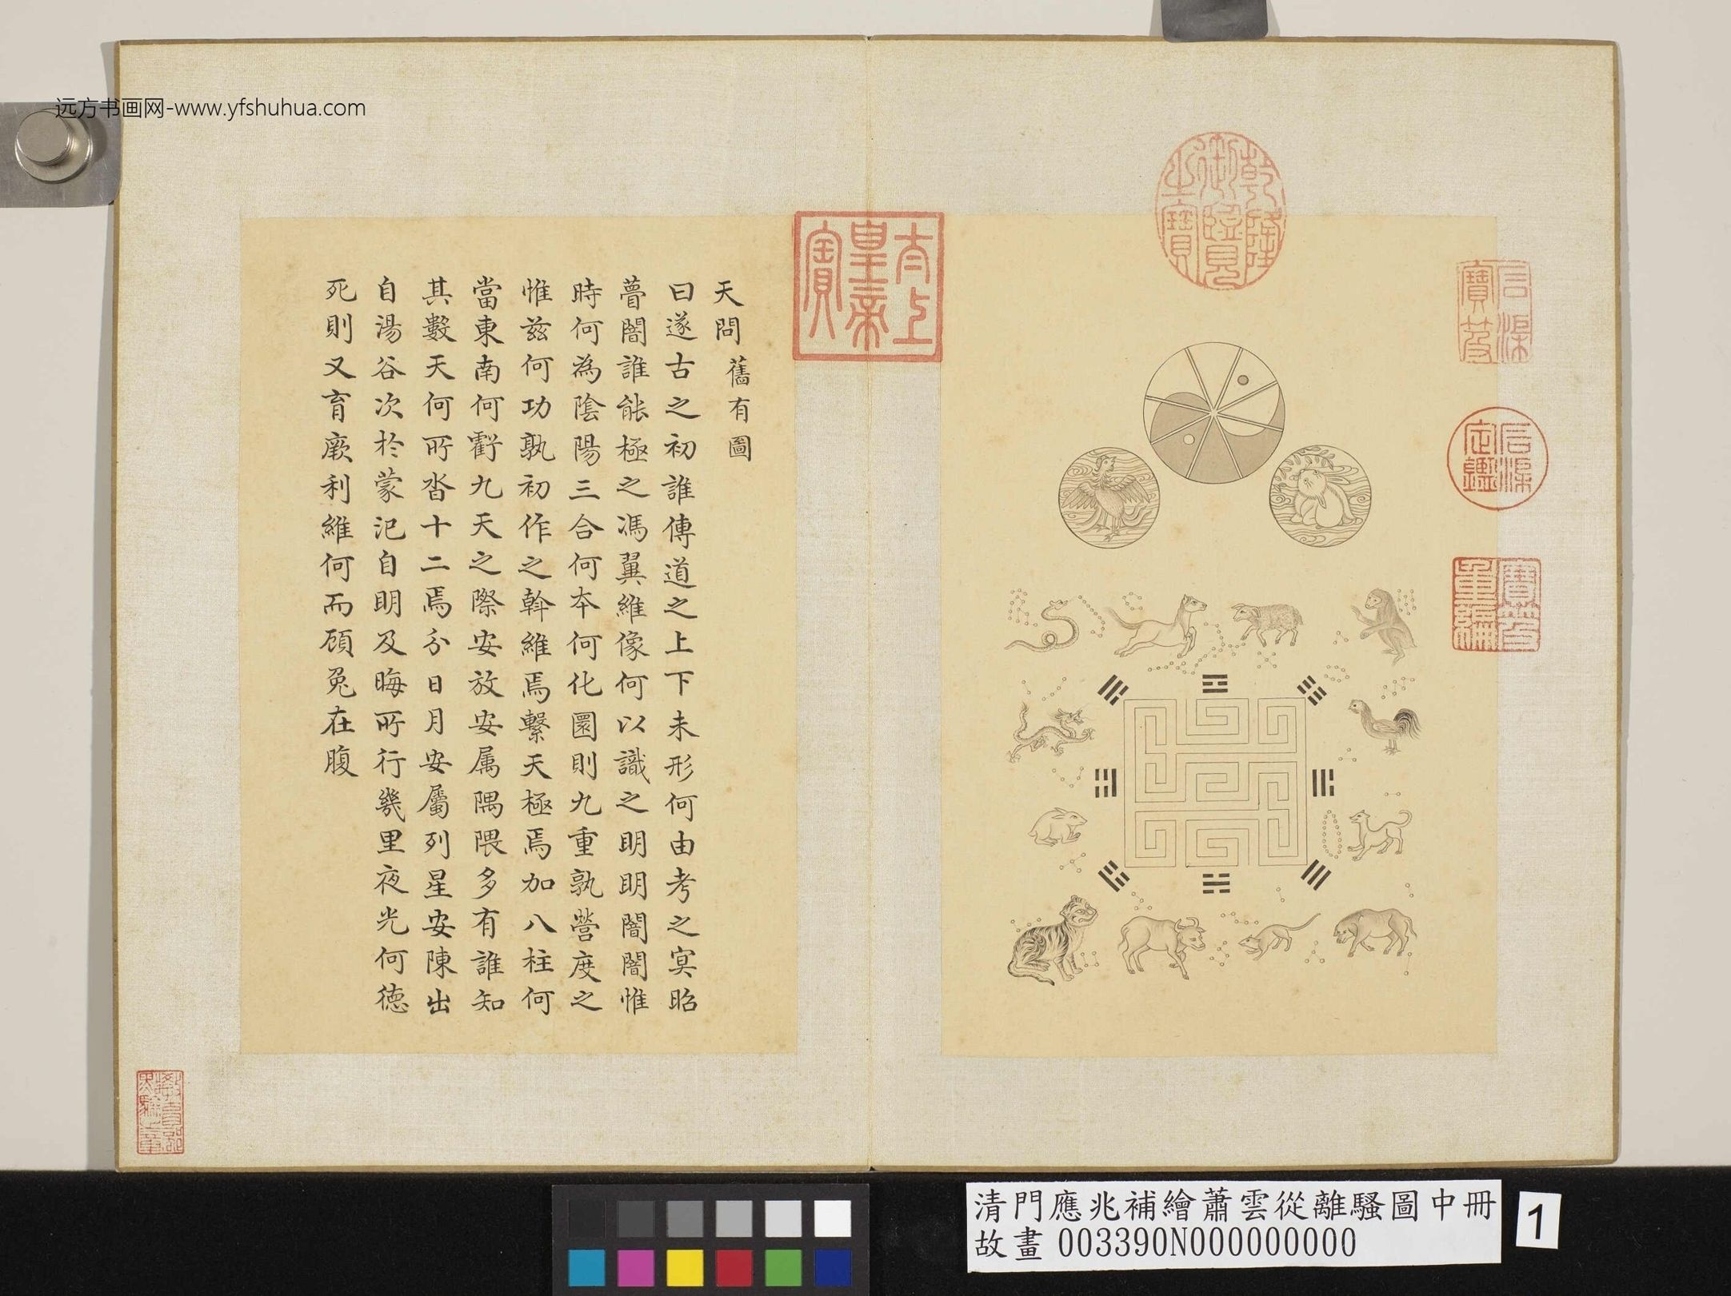 远方书画网-www.yfshuhua.com
乾隆御覽之寶
石渠寶笈
石渠定鑑
寶笈重編
太上皇帝之寶
天問 舊有圖
曰遂古之初誰傳道之上下未形何由考之冥昭
瞢闇誰能極之馮翼維像何以識之明明闇闇惟
時何為陰陽三合何本何化圜則九重孰營度之
惟茲何功孰初作之斡維焉繫天極焉加八柱何
當東南何虧九天之際安放安属隅隈多有誰知
其數天何所沓十二焉分日月安屬列星安陳出
自湯谷次於蒙汜自明及晦所行幾里夜光何德
死則又育厥利維何而顧兔在腹
清門應兆補繪蕭雲從離騷圖中冊
故畫 003390N000000000
1